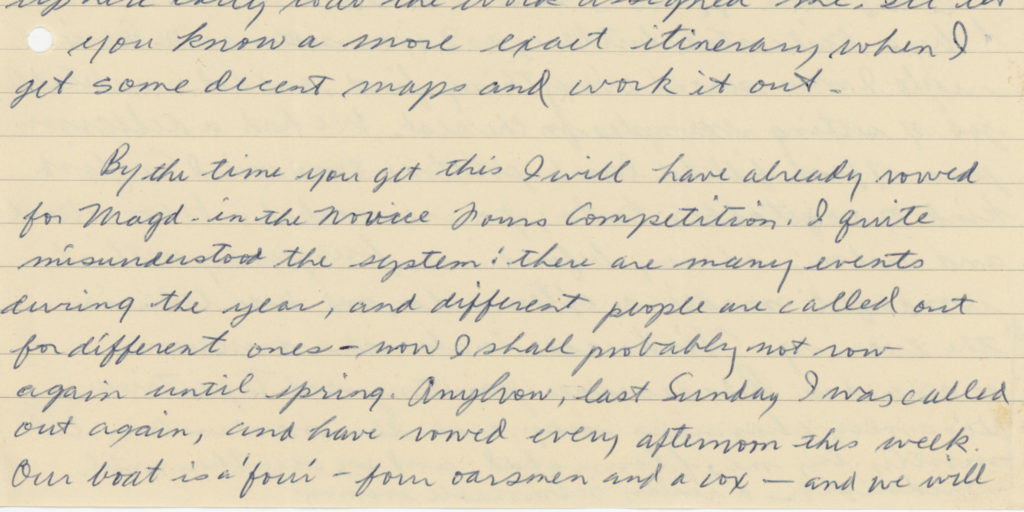 the work assigned me.
you know a more exact itinerary when I
get some decent maps and work it out.
By the time you get this I will have already rowed
for Magd. in the Novice Fours Competition. I quite
misunderstood the system: there are many events
during the year, and different people are called out
for different ones – now I shall probably not row
again until spring. Anyhow, last Sunday I was called
out again, and have rowed every afternoon this week.
Our boat is a 'four' – four oarsmen and a cox – and we will